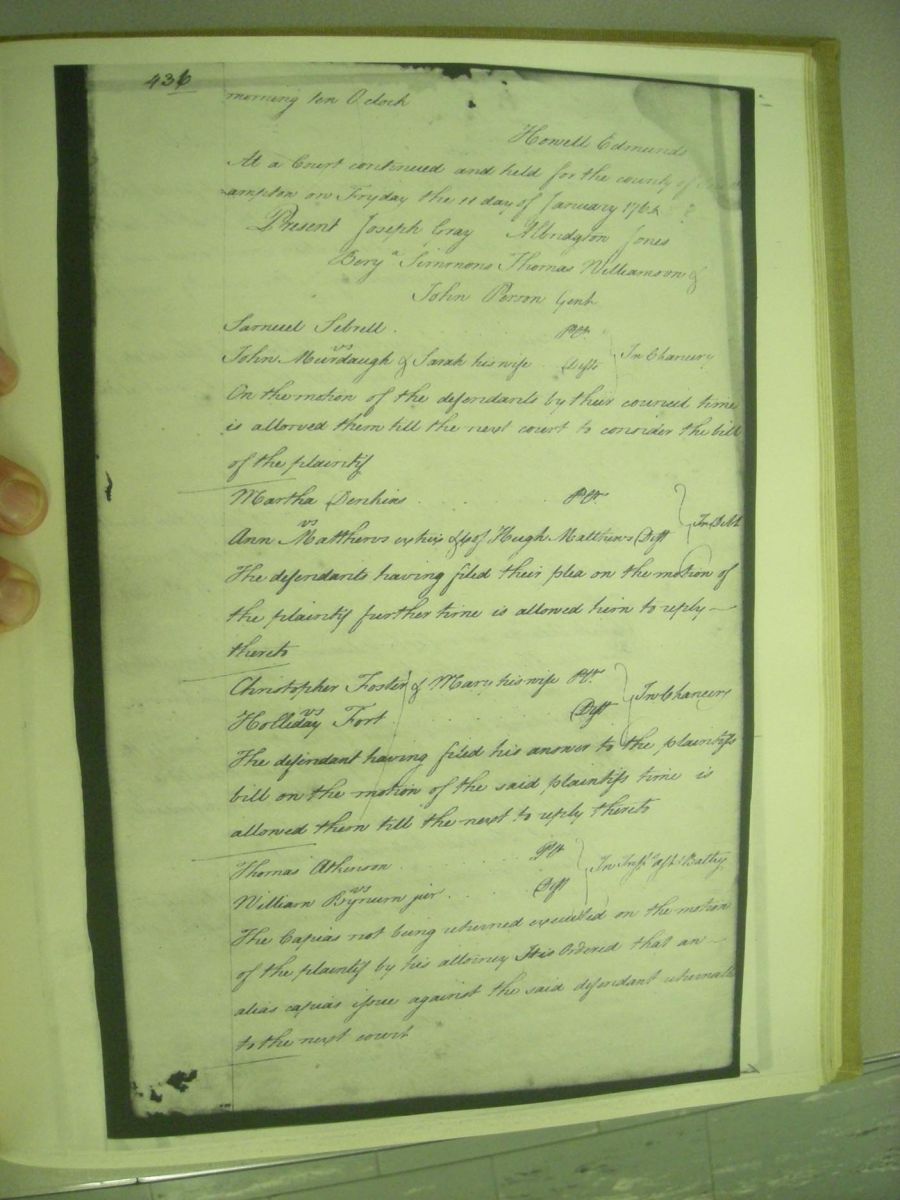 436
morning ten O Clock
Howell Edmunds
At a Court continued and held for the county of
ampton on Fryday the 11 day of January 176
Present Joseph Gray Albridgton Jones
Benjᵃ Simmons Thomas Williamson &
John Person Gent
Samuel Sebrell Plt.
vs
John Murdaugh & Sarah his wife Defts In Chancery
On the motion of the defendants by their councel time
is allowed them till the next court to consider the bill
of the plaintif
Martha Jenkins Plt
vs
Ann Matthews exhix &c of Hugh Matthews Deft In Debt
The defendants having filed their plea on the motion of
the plaintif further time is allowed him to reply
thereto
Christopher Foster & Mary his wife Plt
vs
Holliday Fort Deft In Chancery
The defendant having filed his answer to the plaintiffs
bill on the motion of the said plaintifs time is
allowed them till the next to reply thereto
Thomas Atkinson Plt
vs
William Bynum jur Deft In Trespˢ Asˡᵗ & Battry
The Capias not being returned executed on the motion
of the plaintif by his attorney It is Ordered that an
alias capias issue against the said defendant returnable
to the next court